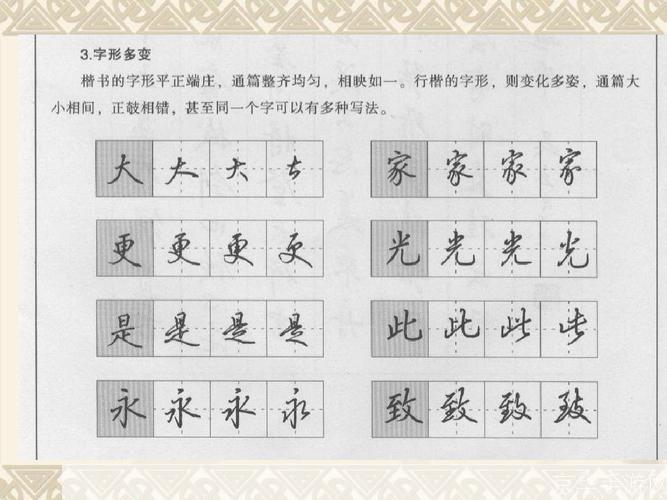 3.字形多变
楷书的字形平正端庄，通篇整齐均匀，相映如一。行楷的字形，则变化多姿，通篇大
小相间，正攲相错，甚至同一个字可以有多种写法。
大 大 大 大 家 家 家 家
更 更 更 更 光 光 光 光
是 是 是 是 此 此 此 此
永 永 永 永 致 致 致 致